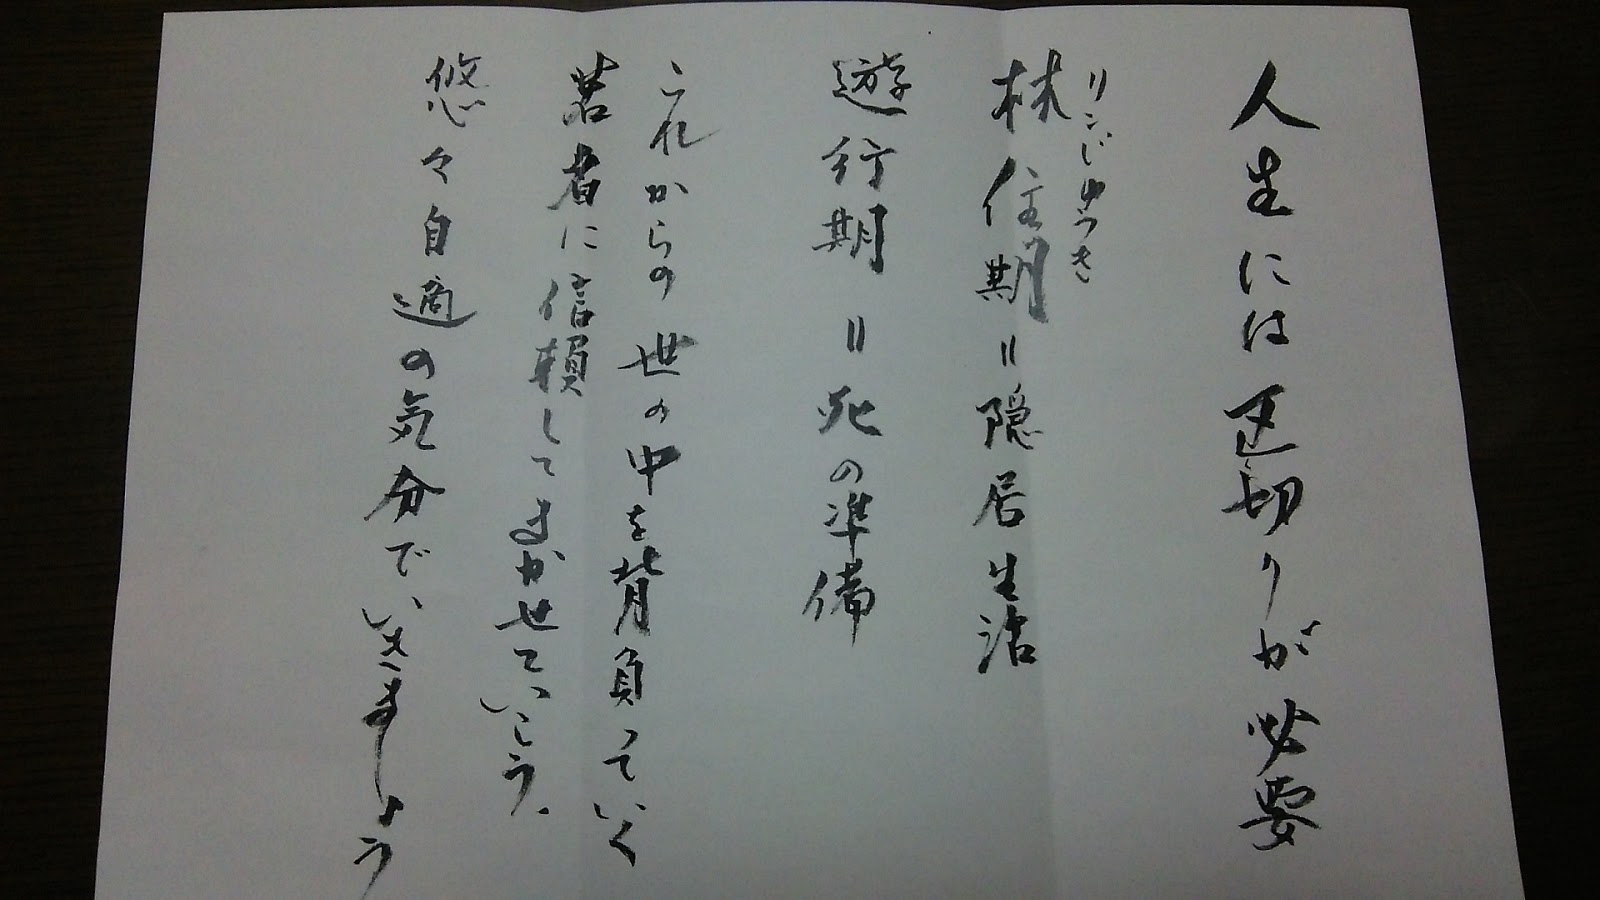 人生には区切りが必要
リンじゆうき
林住期=隠居生活
遊行期=死の準備
これからの世の中を背負っていく
若者に信頼してまかせていこう.
悠々自適の気分でいきましょう